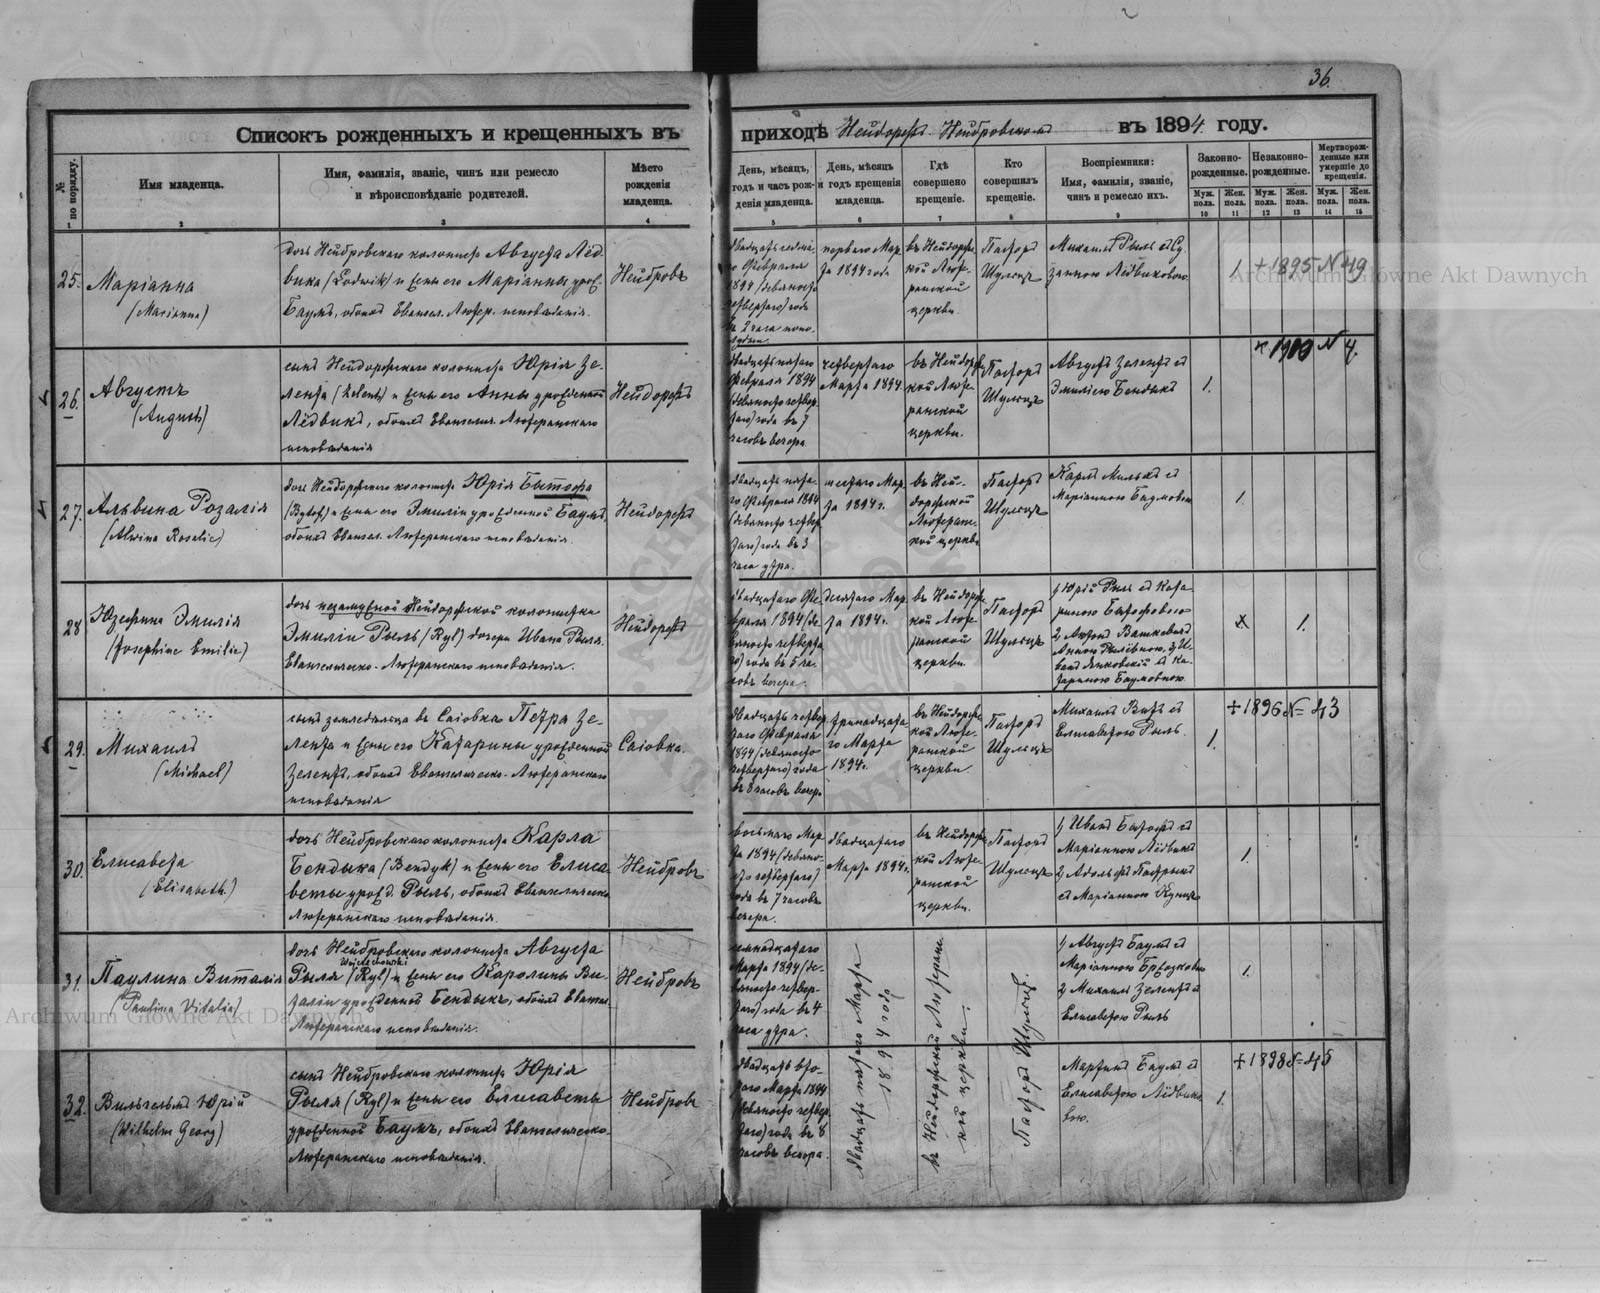 36.
Списокъ рожденныхъ и крещенныхъ въ приходѣ Нейдорфъ-Нейбровскомъ въ 1894 году.
№ по порядку.
Имя младенца.
Имя, фамилія, званіе, чинъ или ремесло
и вѣроисповѣданіе родителей.
Мѣсто
рожденія
младенца.
День, мѣсяцъ,
годъ и часъ рож-
денія младенца.
День, мѣсяцъ
и годъ крещенія
младенца.
Гдѣ
совершено
крещеніе.
Кто
совершилъ
крещеніе.
Воспріемники:
Имя, фамилія, званіе,
чинъ и ремесло ихъ.
Законно-
рожденные.
Незаконно-
рожденные.
Мертворож-
денные или
умершіе до
крещенія.
Муж. пола.
Жен. пола.
Муж. пола.
Жен. пола.
Муж. пола.
Жен. пола.
1 2 3 4 5 6 7 8 9 10 11 12 13 14 15
25.
Маріанна
(Marianna)
дочь Нейбровскаго колониста Августа Лёд-
вика (Lodwik) и жены его Маріанны урож.
Баумъ, обоихъ Евангел. Лютер. исповѣданія.
Нейбровъ
двадцать седьма-
го Февраля
1894 (девяносто
четвертаго) года
въ 2 часа попо-
лудни.
перваго Мар-
та 1894 года
въ Нейдорфс-
кой Люте-
ранской
церкви.
Пасторъ
Шульцъ
Михаилъ Рыль съ Су-
занною Лёдвиковою
1.
+ 1895 № 49
26.
Августъ
(August)
сынъ Нейдорфскаго колониста Юрія Зе-
лента (Zelent) и жены его Анны урожденной
Лёдвикъ, обоихъ Евангелич. Лютеранскаго
исповѣданія
Нейдорфъ
двадцать пятаго
Февраля 1894
(девяносто четвер-
таго) года въ 7
часовъ вечера.
четвертаго
Марта 1894.
въ Нейдорфс-
кой Люте-
ранской
церкви.
Пасторъ
Шульцъ
Августъ Зелентъ съ
Эмиліею Бендыкъ
1.
№ 4.
27.
Альвина Розалія
(Alwina Rosalie)
дочь Нейдорфскаго колониста Юрія Бытофа
(Bytof) и жены его Эмиліи урожденной Баумъ,
обоихъ Евангел. Лютеранскаго исповѣданія.
Нейдорфъ
двадцать пята-
го Февраля 1894
(девяносто четвер-
таго) года въ 3
часа утра.
шестаго Мар-
та 1894 г.
въ Ней-
дорфской
Лютеранс-
кой церкви
Пасторъ
Шульцъ
Карлъ Мильке съ
Маріанною Баумовою
1.
28
Юзефина Эмилія
(Josephine Emilie)
дочь незамужной Нейдорфской колонистки
Эмиліи Рыль (Ryl) дочери Ивана Рыля.
Евангелическо-Лютеранскаго исповѣданія.
Нейдорфъ
двадцатаго Фе-
враля 1894 (де-
вяносто четверта-
го) года въ 5 ча-
совъ вечера.
десятаго Мар-
та 1894 г.
въ Нейдорфс-
кой Люте-
ранской
церкви.
Пасторъ
Шульцъ
1, Юрій Рыль съ Ката-
риною Бытофовою
X
1.
29.
Михаилъ
(Michael)
сынъ земледѣльца въ Саіовка Петра Зе-
лента и жены его Катарины урожденной
Зелентъ, обоихъ Евангелическо-Лютеранскаго
исповѣданія
Саіовка.
двадцать четвер-
таго Февраля
1894 (девяносто
четвертаго) года
въ 8 часовъ вечера
тринадцата-
го Марта
1894 г.
въ Нейдорфс-
кой Люте-
ранской
церкви
Пасторъ
Шульцъ
Михаилъ Витъ съ
Елисаветою Рыль.
1.
+ 1896 № 43
30.
Елисавета
(Elisabeth.)
дочь Нейбровскаго колониста Карла
Бендыка (Bendyk) и жены его Елиса-
веты урожд. Рыль, обоихъ Евангелическо
Лютеранскаго исповѣданія.
Нейбровъ
восьмаго Мар-
та 1894 (девяно-
сто четвертаго)
года въ 7 часовъ
вечера.
двадцатаго
Марта 1894 г.
въ Нейдорфс-
кой Люте-
ранской
церкви.
Пасторъ
Шульцъ
1, Иванъ Бытофъ съ
Маріанною Лёдвикъ
2, Адольфъ Пастрыкъ
съ Маріанною Кунцъ
1.
31.
Паулина Виталія
(Paulina Vitalia)
дочь Нейбровскаго колониста Августа
Рыля (Ryl) и жены его Каролины Ви-
таліи урожденной Бендыкъ, обоихъ Еванг.
Лютеранскаго исповѣданія.
Нейбровъ
семнадцатаго
Марта 1894 (де-
вяносто четвер-
таго) года въ 4
часа утра.
двадцать пятаго Марта
1894 года
въ Нейдорфской Лютеранс-
кой церкви.
Пасторъ Шульцъ.
1, Августъ Баумъ съ
2, Михаилъ Зелентъ съ
Елисаветою Рыль
1.
32.
Вильгельмъ Юрій
(Wilhelm Georg)
сынъ Нейбровскаго колониста Юрія
Рыля (Ryl) и жены его Елисаветы
урожденной Баумъ, обоихъ Евангелическо-
Лютеранскаго исповѣданія.
Нейбровъ
двадцать вто-
раго Марта 1894
(девяносто четвер-
таго) года въ 8
часовъ вечера.
Мартинъ Баумъ съ
Елисаветою Лёдвико-
вою.
1.
+ 1898 № 45
Archiwum Główne Akt Dawnych
Archiwum Główne Akt Dawnych